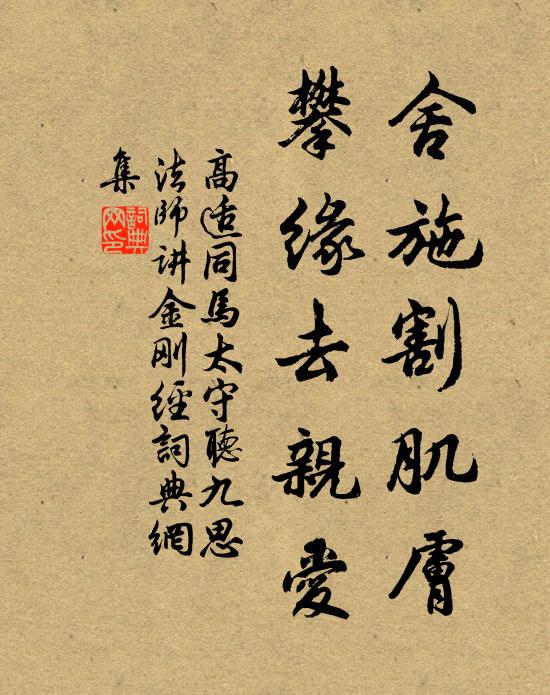 舍施割肌膚
攀緣去親愛
高适同馬太守聽九思
法師讲金刚經詞典網
集
詞典网印